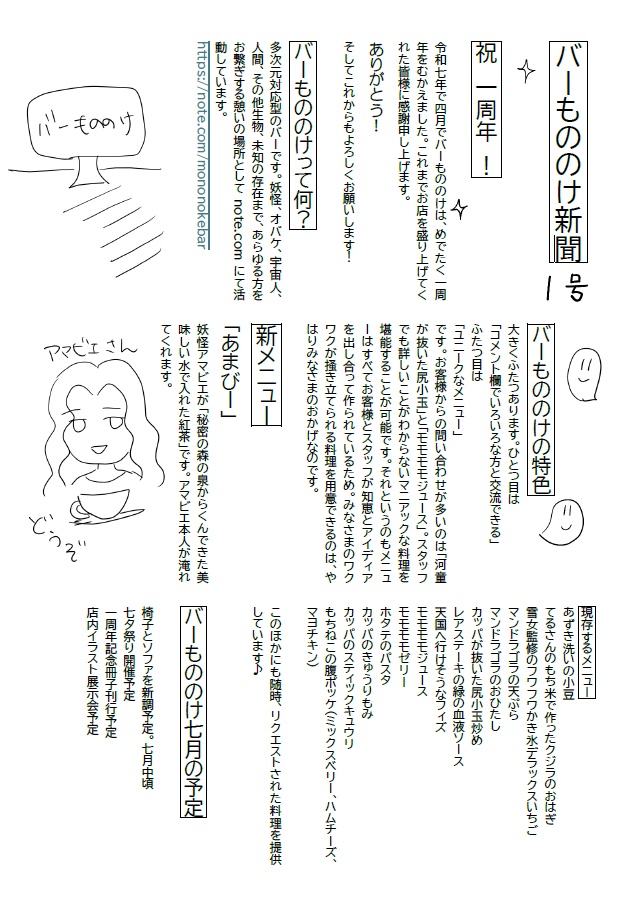 バーもののけ新聞
1号
祝 一周年 !
令和七年で四月でバーもののけは、めでたく一周
年をむかえました。これまでお店を盛り上げてく
れた皆様に感謝申し上げます。
ありがとう!
そしてこれからもよろしくお願いします!
バーもののけって何?
多次元対応型のバーです。妖怪、オバケ、宇宙人、
人間、その他生物、未知の存在まで、あらゆる方を
お繋ぎする憩いの場所として note.com にて活
動しています。
https://note.com/mononokebar
バーもののけ
バーもののけの特色
大きくふたつあります。ひとつ目は
「コメント欄でいろいろな方と交流できる」
ふたつ目は
「ユニークなメニュー」
です。お客様からの問い合わせが多いのは「河童
が抜いた尻小玉」と「モモモモジュース」。スタッフ
でも詳しいことがわからないマニアックな料理を
堪能することが可能です。それというのもメニュ
ーはすべてお客様とスタッフが知恵とアイディア
を出し合って作られているため。みなさまのワク
ワクが掻き立てられる料理を用意できるのは、や
はりみなさまのおかげなのです。
新メニュー
「あまびー」
妖怪アマビエが「秘密の森の泉からくんできた美
味しい水で入れた紅茶」です。アマビエ本人が淹れ
てくれます。
アマビエさん
どうぞ
現存するメニュー
あずき洗いの小豆
てるさんのもち米で作ったクジラのおはぎ
雪女監修のフワフワかき氷デラックスいちご
マンドラゴラの天ぷら
マンドラゴラのおひたし
カッパが抜いた尻小玉炒め
レアステーキの緑の血液ソース
天国へ行けそうなフィズ
モモモモジュース
モモモモゼリー
ホタテのパスタ
カッパのきゅうりもみ
カッパのスティックキュウリ
もちねこの腹ポッケ(ミックスベリー、ハムチーズ、
マヨチキン)
このほかにも随時、リクエストされた料理を提供
しています♪
バーもののけ七月の予定
椅子とソファを新調予定。七月中頃
七夕祭り開催予定
一周年記念冊子刊行予定
店内イラスト展示会予定